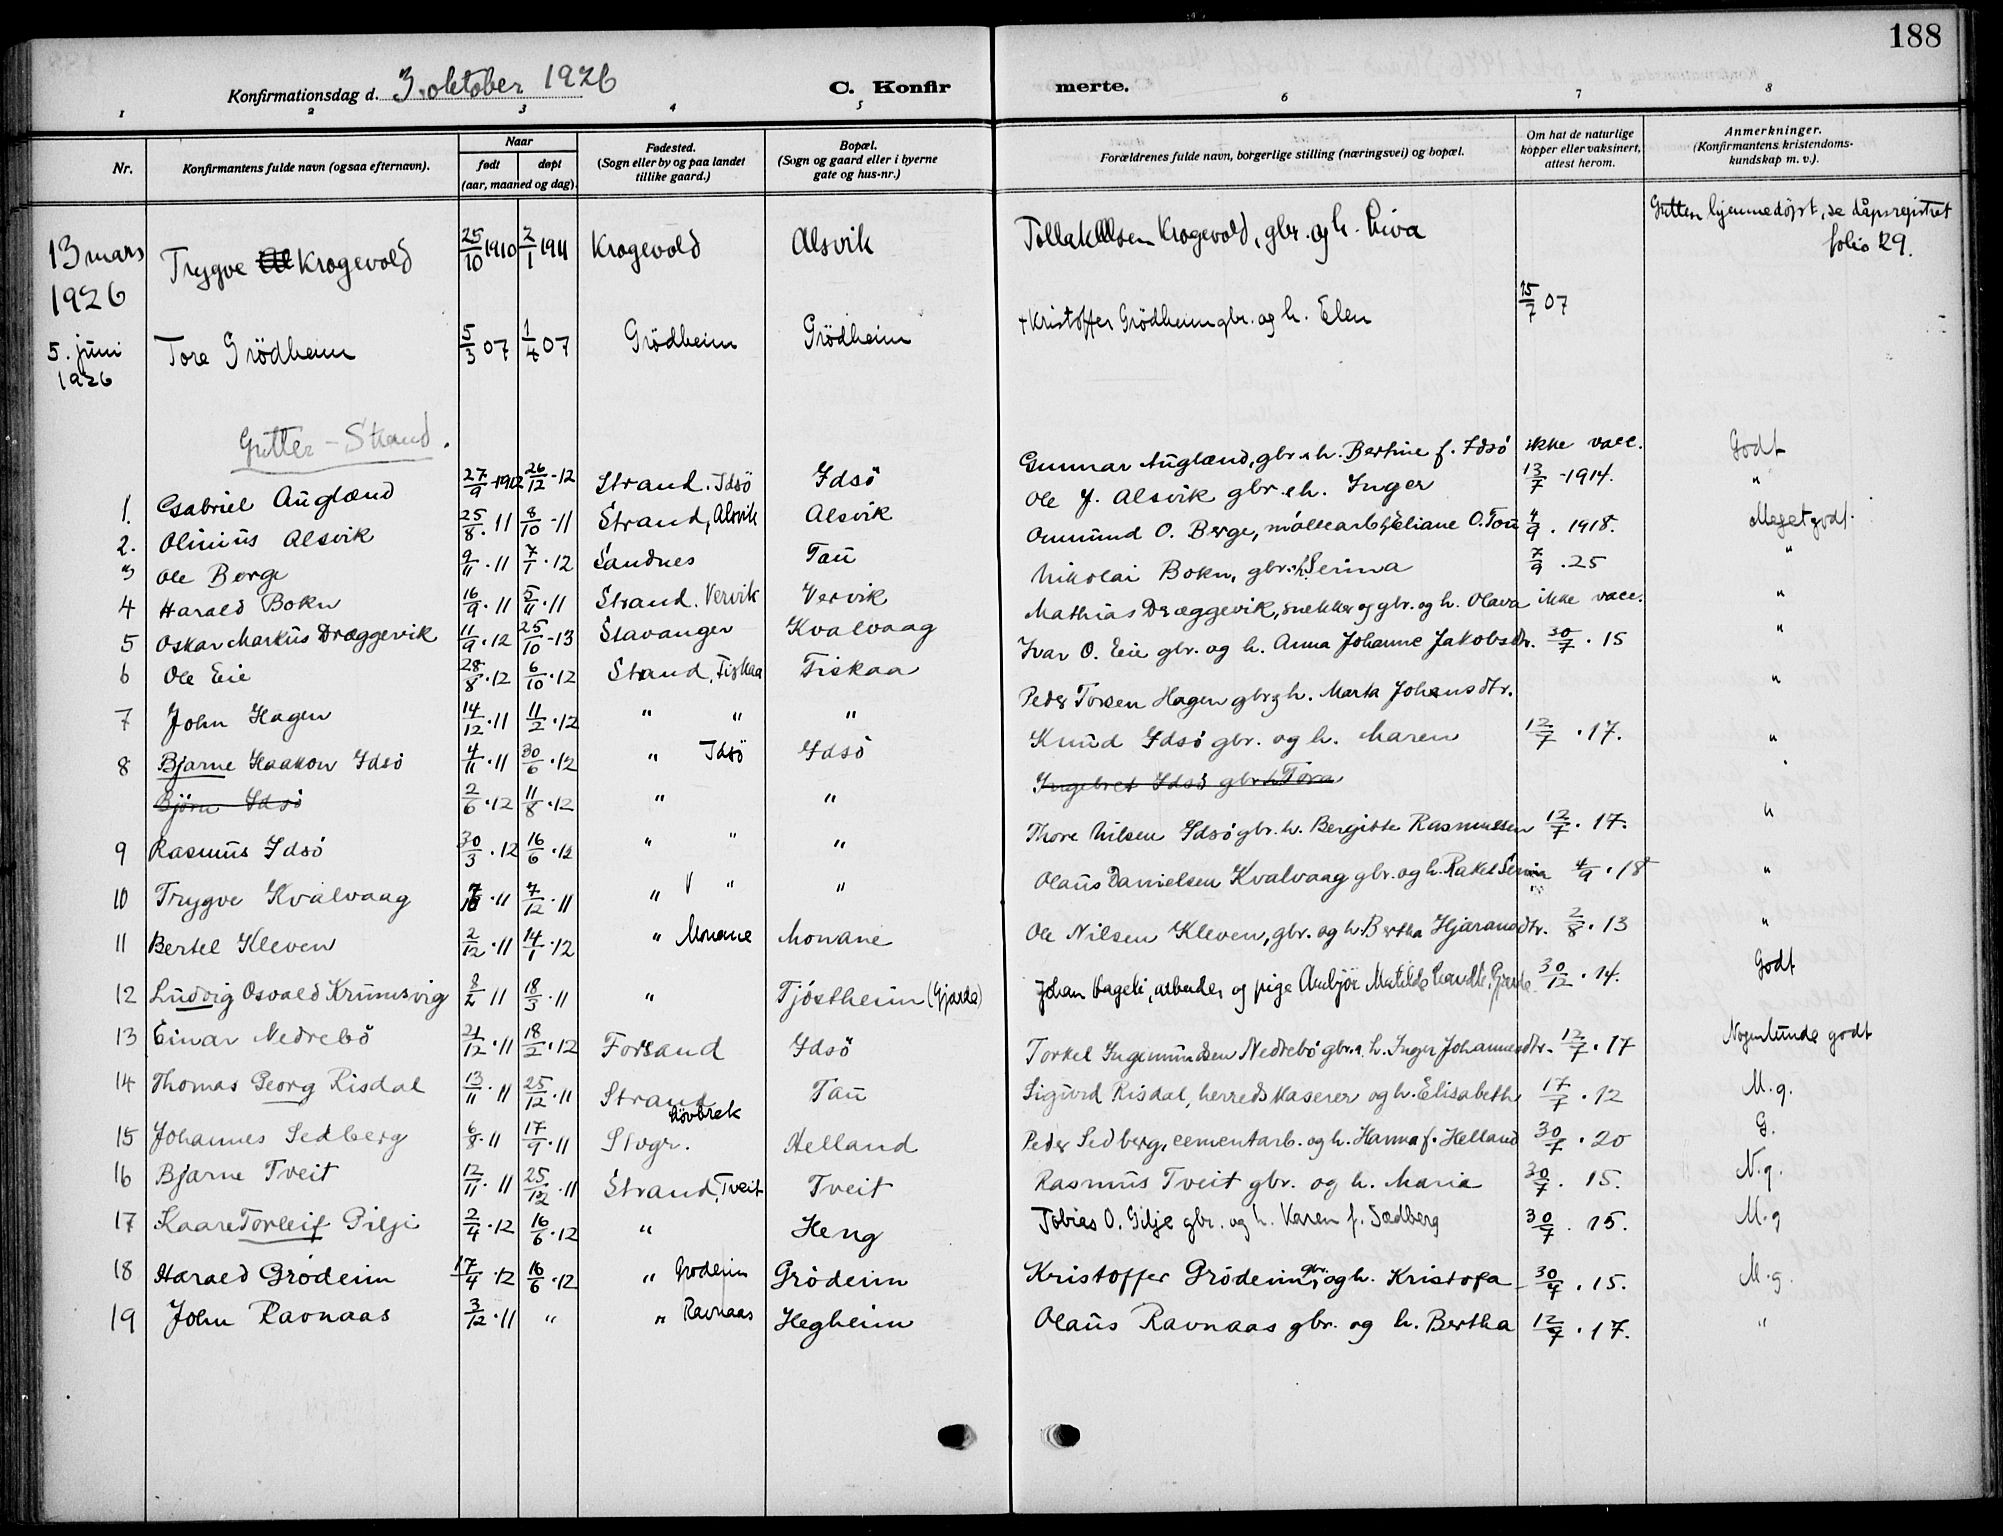 188
Konfirmationsdag d. 3. oktober 1926 C. Konfirmerte.
1 2 3 4 5 6 7 8
Nr. Konfirmantens fulde navn (ogsaa efternavn). Naar født døpt (aar, maaned og dag). Fødested. (Sogn eller by og paa landet tillike gaard.) Bopæl. (Sogn og gaard eller i byerne gate og hus-nr.) Forældrenes fulde navn, borgerlige stilling (næringsvei) og bopæl. Om hat de naturlige kopper eller vaksinert, attest herom. Anmerkninger. (Konfirmantens kristendomskundskap m. v.).
13 mars 1926 Trygve Krogevold 25/10 1910 2/1 1911 Krogevold Alsvik Tollak Olsen Krogevold, gbr. og h. Liva Gutten hjemmedøpt, se dåpsregistret folio 129.
5. juni 1926 Tore Grödheim 5/3 07 1/4 07 Grödheim Grödheim + Kristoffer Grödheim gbr. og h. Elen 15/7 07
Gutter - Strand.
1. Gabriel Auglænd 27/9 - 1912 26/12 - 12 Strand. Idsö Idsö Gunnar Auglænd, gbr. & h. Bertine f. Idsö ikke vacc. Godt
2. Olinius Alsvik 25/8 . 11 8/10 - 11 Strand, Alsvik Alsvik Ole J. Alsvik gbr. & h. Inger 13/7 - 1914. "
3 Ole Berge 9/11 . 11 7/1 . 12 Sandnes Tau Ommund O. Berge, möllearb. & Eliane O. Tou 4/9 . 1918. Meget godt.
4 Harald Bokn 16/9 . 11 5/11 . 11 Strand. Vervik Vervik Nikolai Bokn, gbr. & h. Serina 7/9 . 25 "
5 Oskar Markus Dræggevik 11/9 . 12 25/10 - 13 Stavanger Kvalvaag Mathias Dræggevik, snekker og gbr. og h. Olava ikke vacc. "
6 Ole Eie 28/8 . 12 6/10 . 12 Strand, Fiskaa Fiskaa Ivar O. Eie gbr. og h. Anna Johanne Jakobsdtr. 30/7 . 15 "
7 John Hagen 14/12 . 11 11/2 . 12 " " " Peder Torsen Hagen gbr. og h. Marta Johansdtr. "
8 Bjarne Haakon Idsö 4/11 . 11 30/6 . 12 " Idsö Idsö Knud Idsö gbr. og h. Maren 12/7 . 17. "
Björn Idsö 2/6 . 12 11/8 . 12 " " Ingebret Idsö gbr. h. Tora
9 Rasmus Idsö 30/3 . 12 16/6 . 12 " " " Thore Nilsen Idsö gbr. h. Bergitte Rasmussen 12/7 . 17. "
10 Trygve Kvalvaag 7/10 . 11 7/12 . 11 " " " Olaus Danielsen Kvalvaag gbr. og h. Rakel Serina 4/9 . 18 "
11 Bertel Kleven 2/12 . 11 14/1 . 12 " Monane Monane Ole Nilsen Kleven, gbr. og h. Bertha Hjaransdtr. 2/8 . 13 "
12 Ludvig Osvald Krunisvig 8/2 11 18/3 . 11 " Tjöstheim (Gjarde) Johan Hageli, arbeider og pige Matilde 30/12 . 14. Godt
13 Einar Nedrebö 21/12 . 11 18/2 . 12 Forsand Idsö Torkel Ingemundsen Nedrebö gbr. & h. Inger Johannesdtr. 12/7 . 17 Nogenlunde godt
14 Thomas Georg Risdal 13/11 . 11 25/12 . 11 Strand Tau Sigurd Risdal, herredskaserer og h. Elisabeth 17/7 . 12 M.g.
15 Johannes Sedberg 6/8 . 11 17/9 . 11 Stvgr. Helland Peder Sedberg, cementarb. og h. Hanna f. Helland 30/7 . 20 G.
16 Bjarne Tveit 12/11 . 11 25/12 . 11 Strand, Tveit Tveit Rasmus Tveit gbr. og h. Maria 30/7 . 15. N.g.
17 Kaare Torleif Gilje 2/4 . 12 16/6 . 12 " Heng Tobias O. Gilje gbr. og h. Karen f. Sædberg 30/7 . 15. M.g
18 Harald Grödeim 17/4 . 12 16/6 . 12 " Grodeim Grödeim Kristoffer Grödeim, gbr. og h. Kristofa 30/7 . 15. M.g.
19 John Ravnaas 3/12 . 11 " " Ravnaas Hegheim Olaus Ravnaas gbr. og h. Bertha 12/7 . 17. "